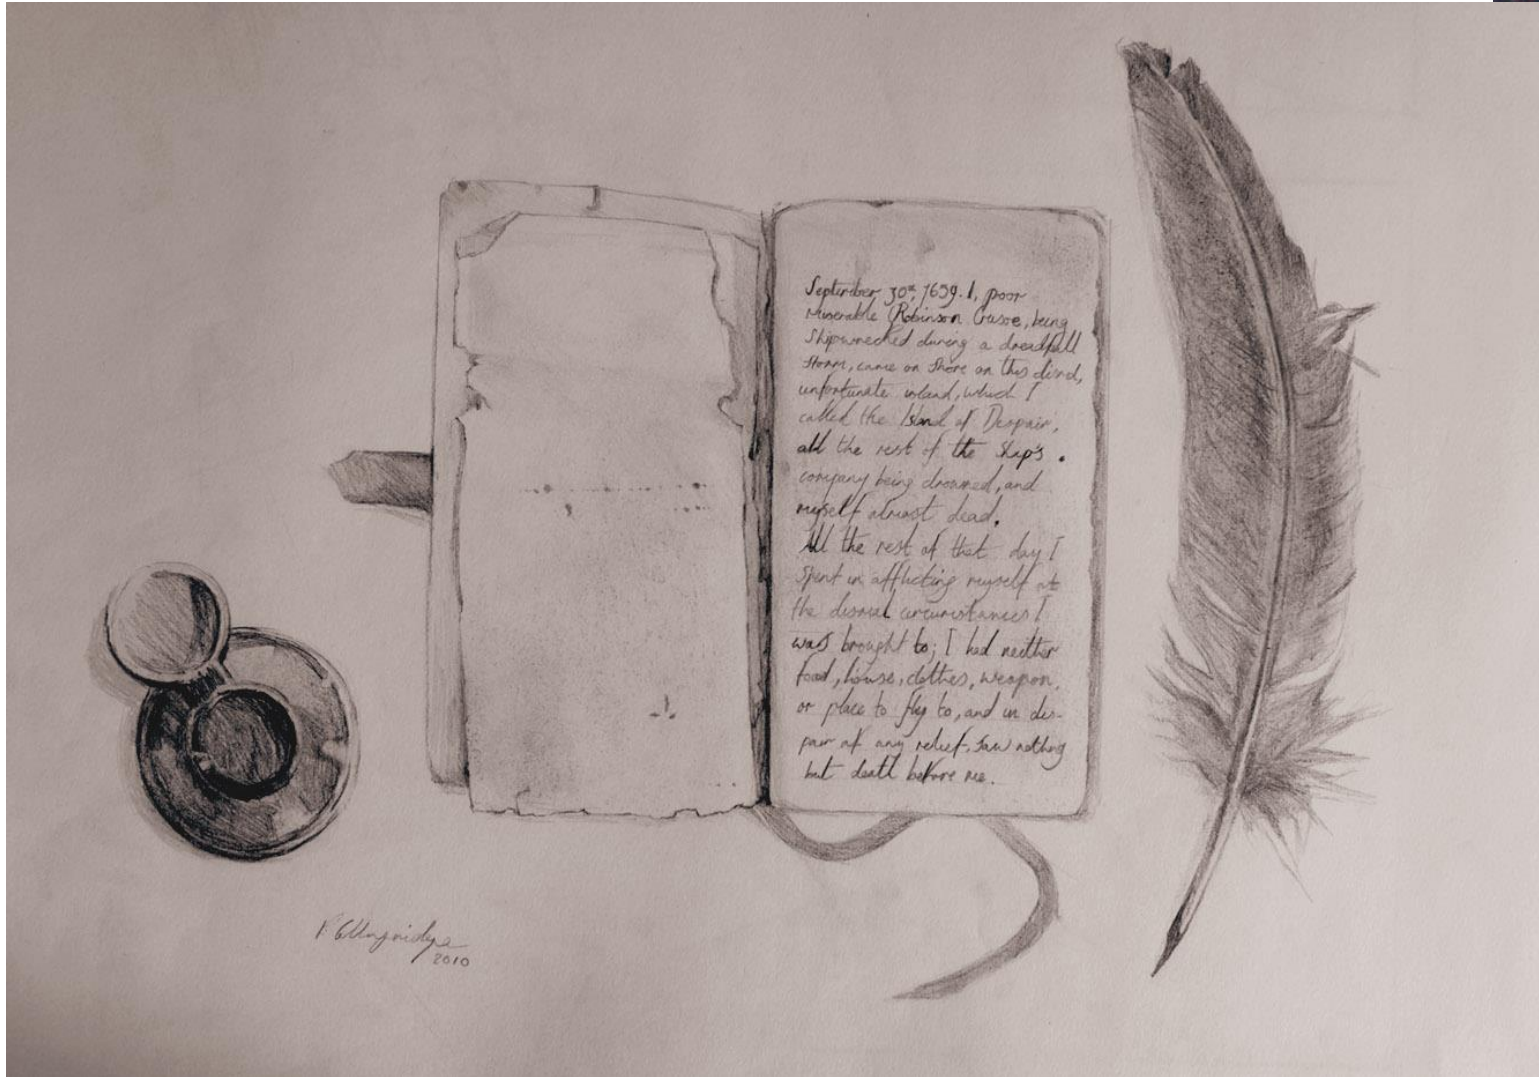 September 30th, 1659. I, poor
Miserable Robinson Crusoe, being
Shipwrecked during a dreadfull
storm, came on shore on this dismd,
unfortunate island, which I
called the Island of Despair,
all the rest of the Ship's
company being drowned, and
myself almost dead.
All the rest of that day I
spent in afflicting myself at
the dismal circumstances I
was brought to; I had neither
food, house, clothes, weapon,
or place to fly to, and in des-
pair of any relief, saw nothing
but death before me.
2010